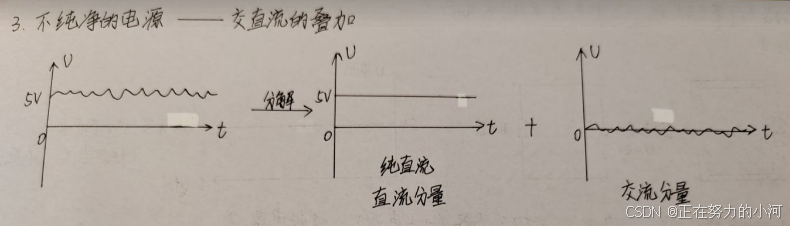 3. 不纯净的电源 —— 交直流的叠加
U
5V
0
t
分解
U
5V
0
t
纯直流
直流分量
+
U
0
t
交流分量
CSDN @正在努力的小河